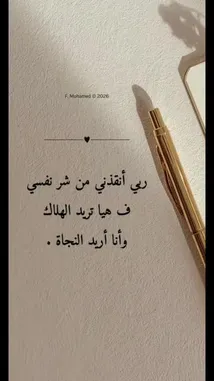 F. Mohamed © 2026
ربي أنقذني من شر نفسي
ف هيا تريد الهلاك
وأنا أريد النجاة .